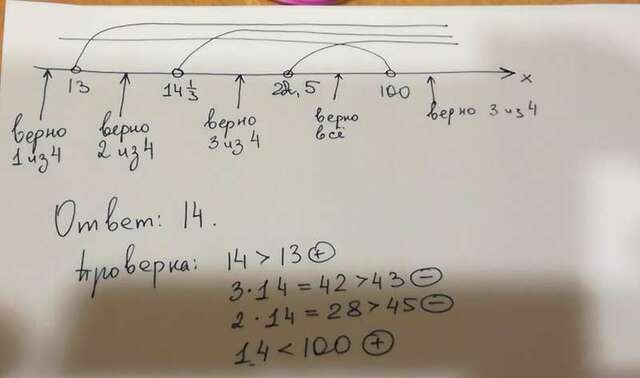 13 14 1/3 22,5 100 x
верно 1 из 4
верно 2 из 4
верно 3 из 4
верно всё
верно 3 из 4
Ответ: 14.
Проверка: 14 > 13 (+)
3·14 = 42 > 43 (−)
2·14 = 28 > 45 (−)
14 < 100 (+)